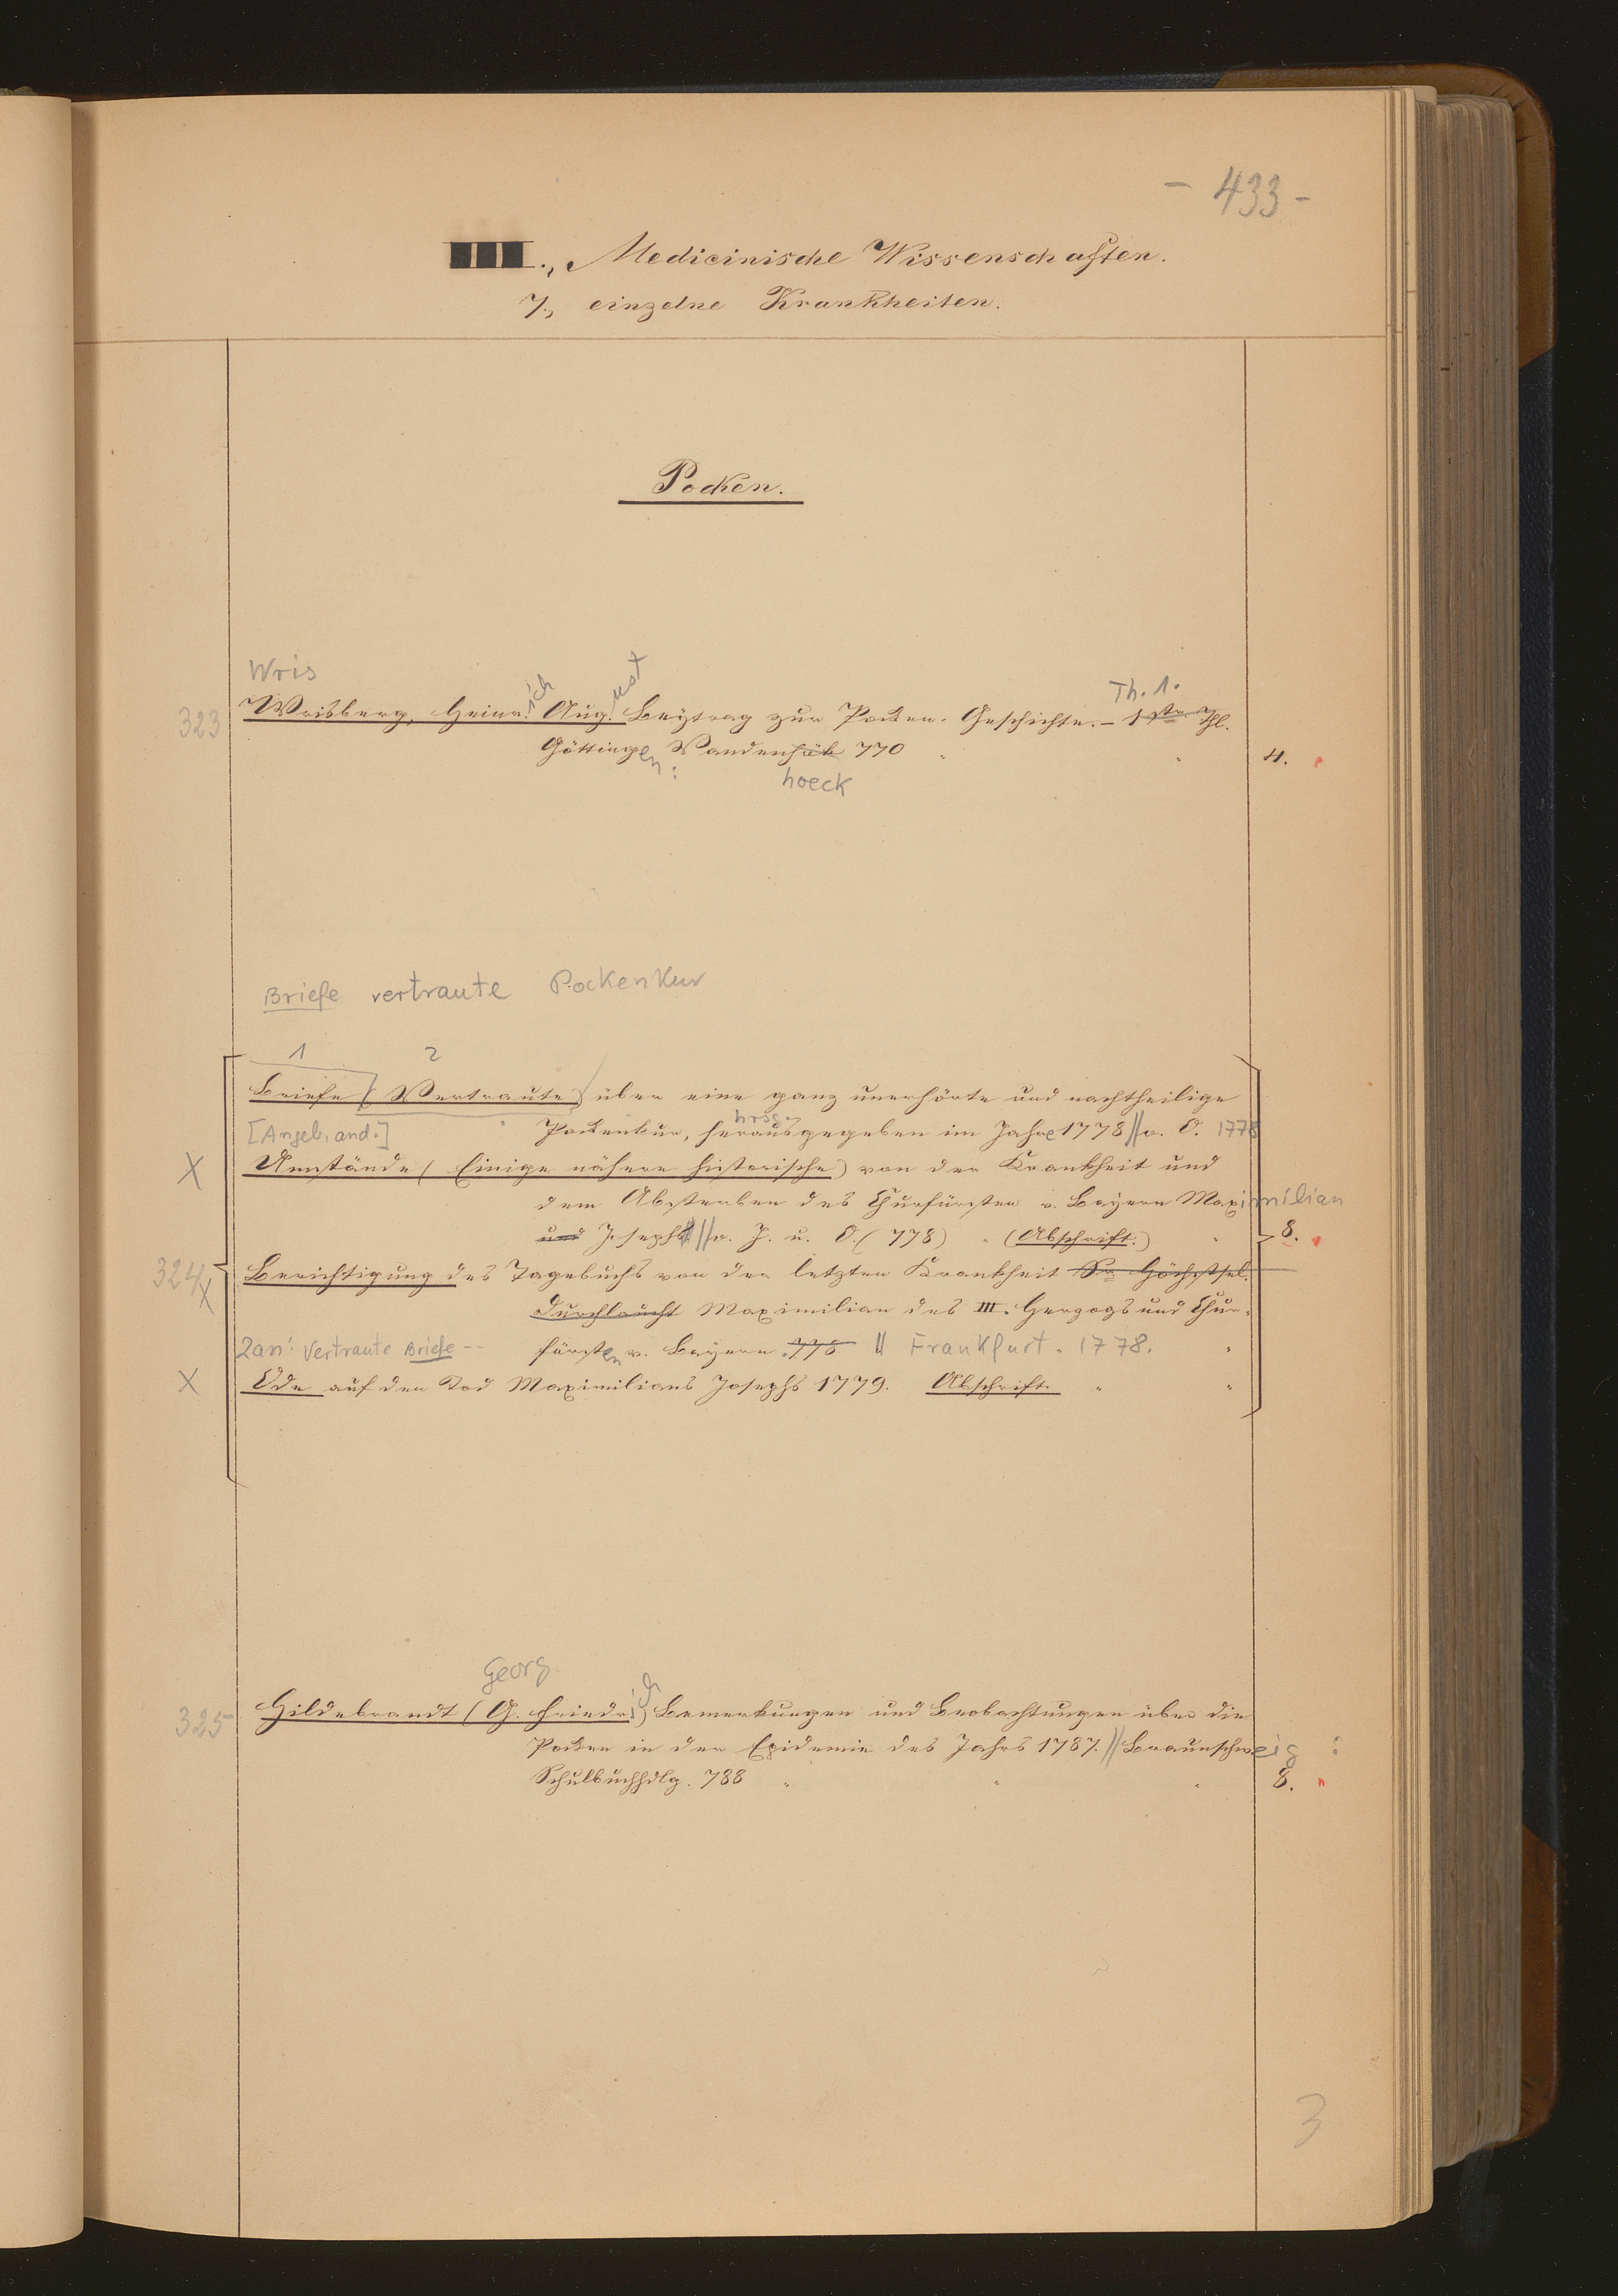 - 433 -
III., Medicinische Wissenschaften.
7., einzelne Krankheiten.
Pocken.
Wris
ich ust Th. 1.
323 Wrisberg, Heinr. Aug. Beÿtrag zur Pocken-Geschichte. – 1ster Thl.
Göttingen: Vandenhük 770 " " 4. "
hoeck
Briefe vertraute Pockenkur
1 2
Briefe (Vertraute) über eine ganz unerhörte und nachtheilige
hrsg.
[Angeb. and.] Pockenkur, herausgegeben im Jahre 1778 // o. O. 1778
X Umstände (Einige nähere historische) von der Krankheit und
dem Absterben des Churfürsten v. Bayern Maximilian
und Josephs // o. J. u. O. (778) " (Abschrift.) " 8. "
324 X Berichtigung des Tagebuchs von der letzten Krankheit Sr Höchstsel.
Durchlaucht Maximilian des III. Herzogs und Chur-
2an: Vertraute Briefe -- fürsten v. Bayern. 778 // Frankfurt. 1778. "
X Ode auf den Tod Maximilians Josephs 1779. Abschrift. " "
Georg
325 Hildebrandt (G. Friedrich) Bemerkungen und Beobachtungen über die
Pocken in der Epidemie des Jahrs 1787. // Braunschweig :
Schulbuchhdlg. 788 " " " 8. "
3